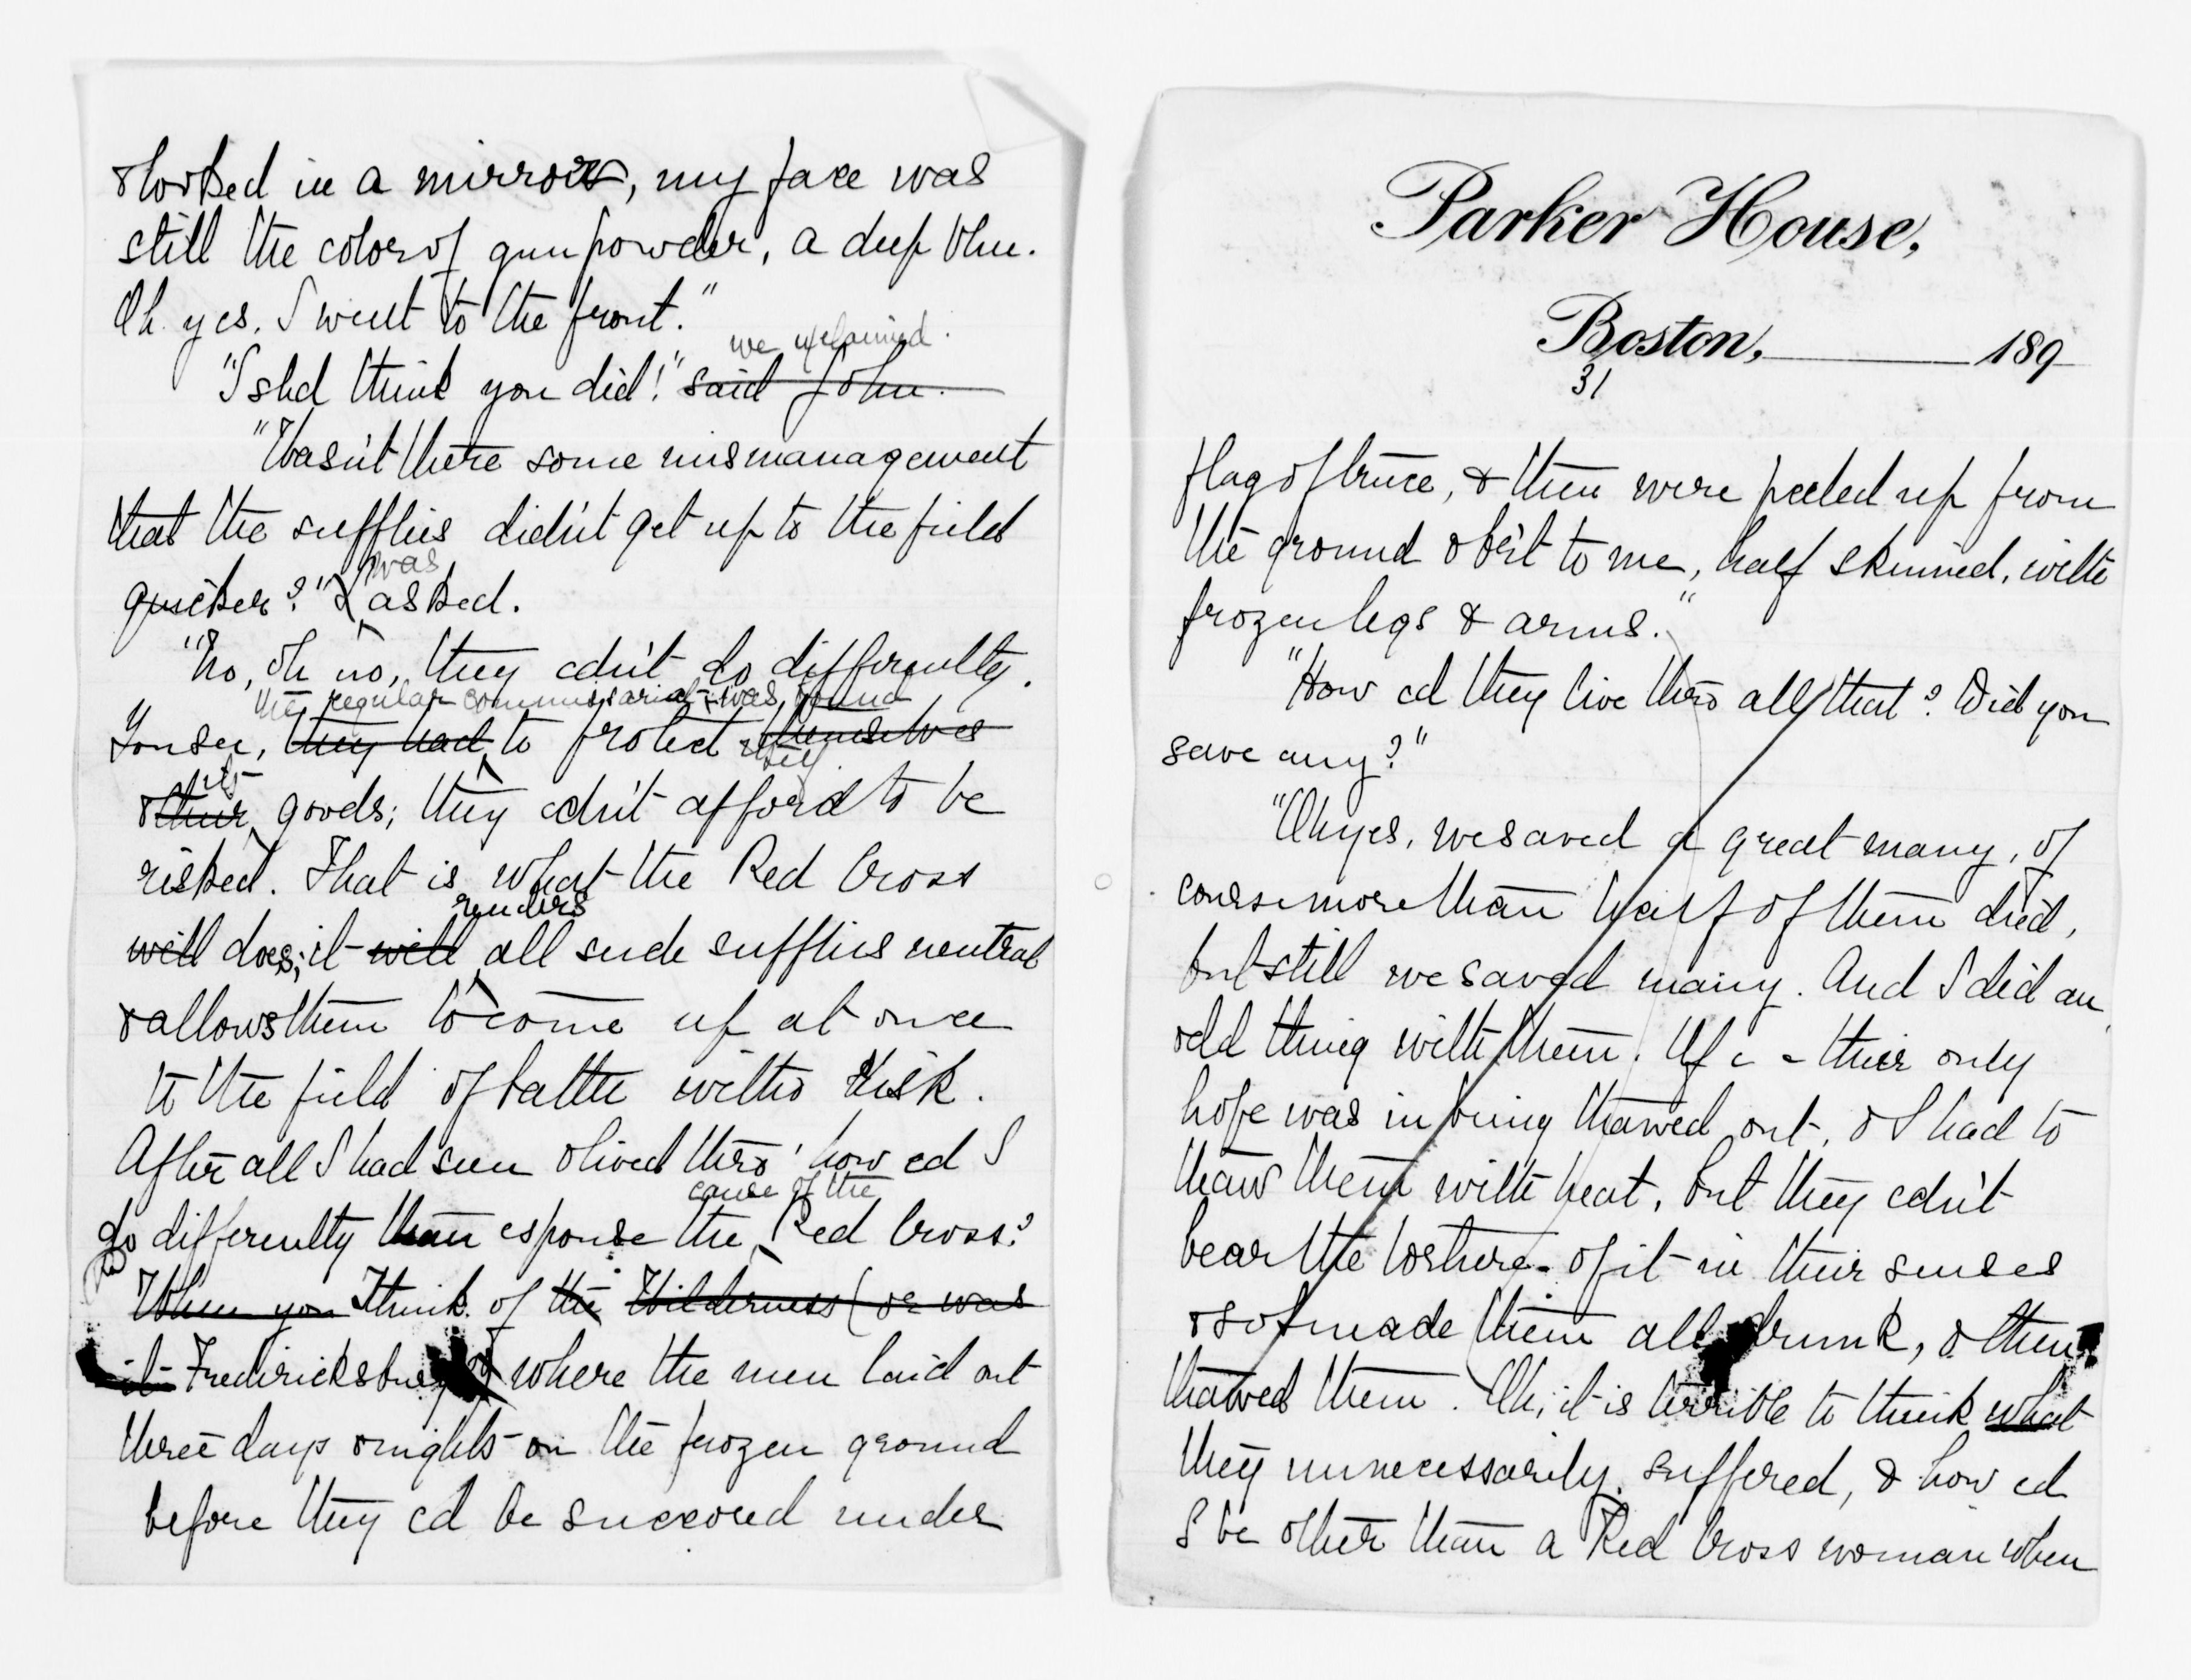 & looked in a mirror, my face was
still the color of gunpowder, a deep blue.
Oh yes, I went to the front."
we exclaimed.
"I shd think you did!" said John.
"Wasn't there some mismanagement
that the supplies didn't get up to the field
was
quicker?" I asked.
"No, oh no, they cdn't do differently.
the regular commissariat was bound
You see, they had to protect themselves
itself
its
& their goods; they cdn't afford to be
risked. That is what the Red Cross
renders
will does; it will all such supplies neutral
& allows them to come up at once
to the field of battle witho risk.
After all I had seen & lived thro' how cd I
cause of the
do differently than espouse the Red Cross?
When you I think of the Wilderness (or was
it Fredericksburg) where the men laid out
three days & nights on the frozen ground
before they cd be succored under
Parker House,
Boston, 189
31
flag of truce, & then were peeled up from
the ground & br't to me, half skinned, with
frozen legs & arms."
"How cd they live thro all that? Did you
save any?"
"Oh yes, we saved a great many, of
course more than half of them died,
but still we saved many. And I did an
odd thing with them. Of c - their only
hope was in being thawed out, & I had to
thaw them with heat, but they cdn't
bear the torture of it in their senses
& so I made them all drunk, & then
thawed them. Oh, it is terrible to think what
they unnecessarily suffered, & how cd
I be other than a Red Cross woman when